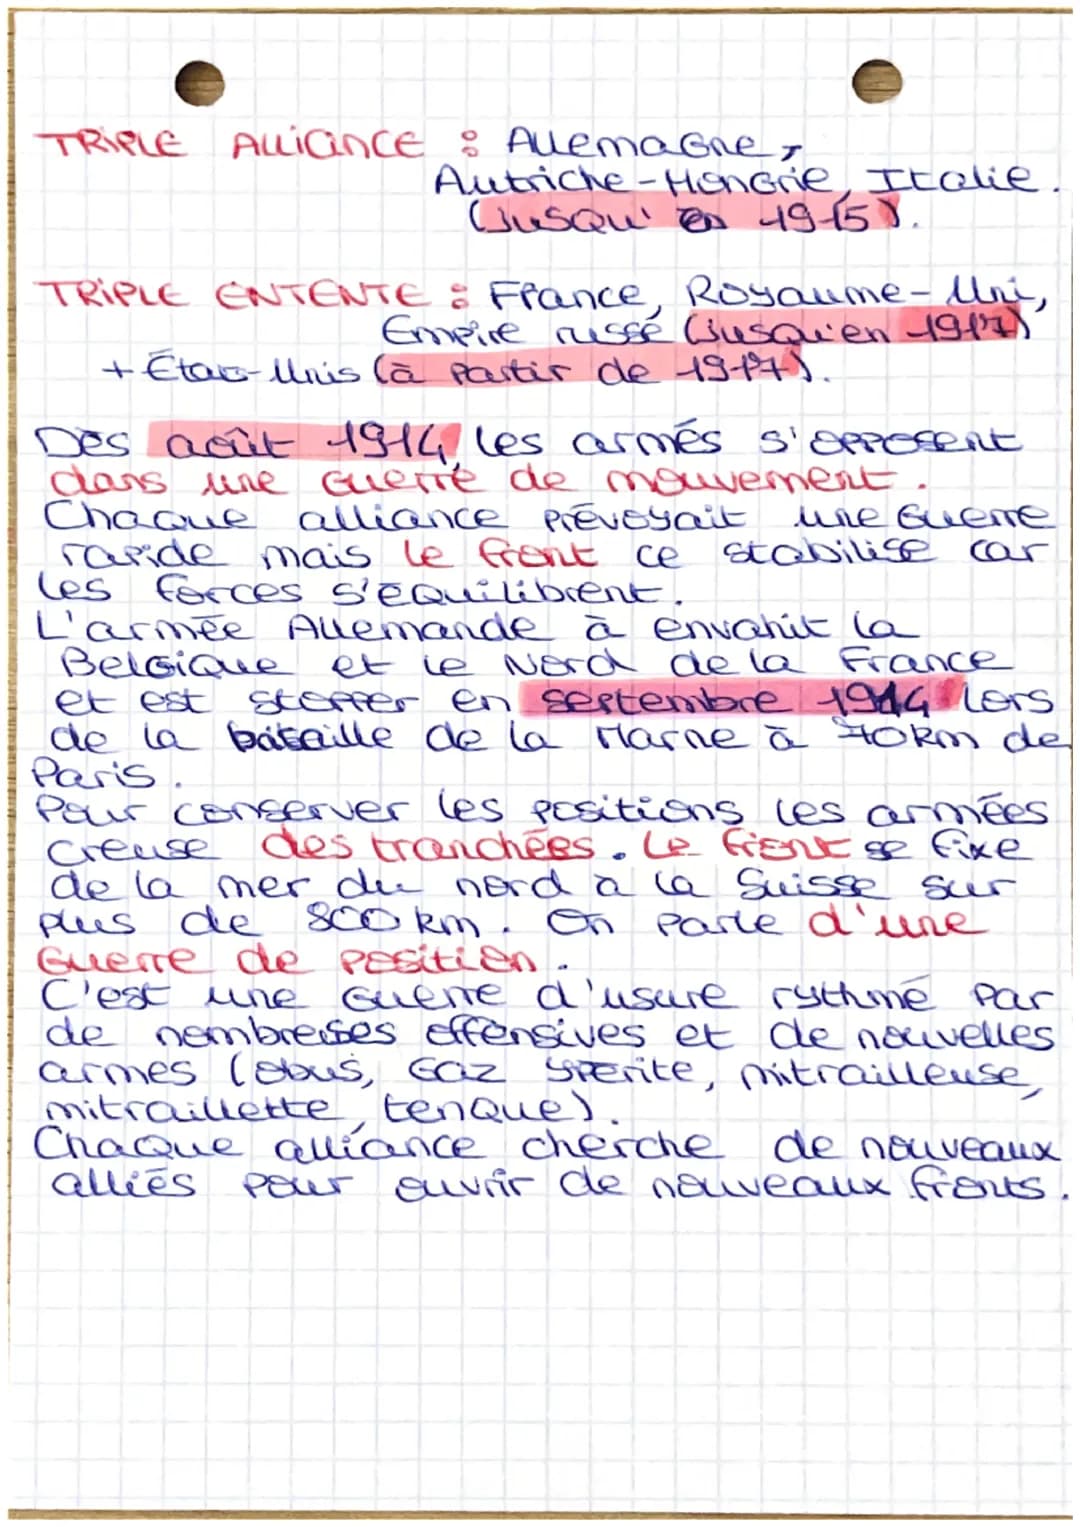 TRIPLE ALLIANCE : Allemagne,
Autriche-Hongrie, Italie.
(Jusqu'en 1915).
TRIPLE ENTENTE : France, Royaume-Uni,
Empire russe (jusqu'en 1917)
+ États-Unis (à partir de 1917).
Dès août 1914, les armés s'opposent
dans une guerre de mouvement.
Chaque alliance prévoyait une guerre
rapide mais le front ce stabilise car
les forces s'équilibrent.
L'armée Allemande à envahit la
Belgique et le Nord de la France
et est stopper en septembre 1914 lors
de la bataille de la Marne à 70km de
Paris.
Pour conserver les positions les armées
creuse des tranchées. Le front se fixe
de la mer du nord à la Suisse sur
plus de 800 km. On parle d'une
Guerre de position.
C'est une guerre d'usure rythmé par
de nombreuses offensives et de nouvelles
armes (obus, Gaz ypérite, mitrailleuse,
mitraillette, tenque).
Chaque alliance cherche de nouveaux
alliés pour ouvrir de nouveaux fronts.